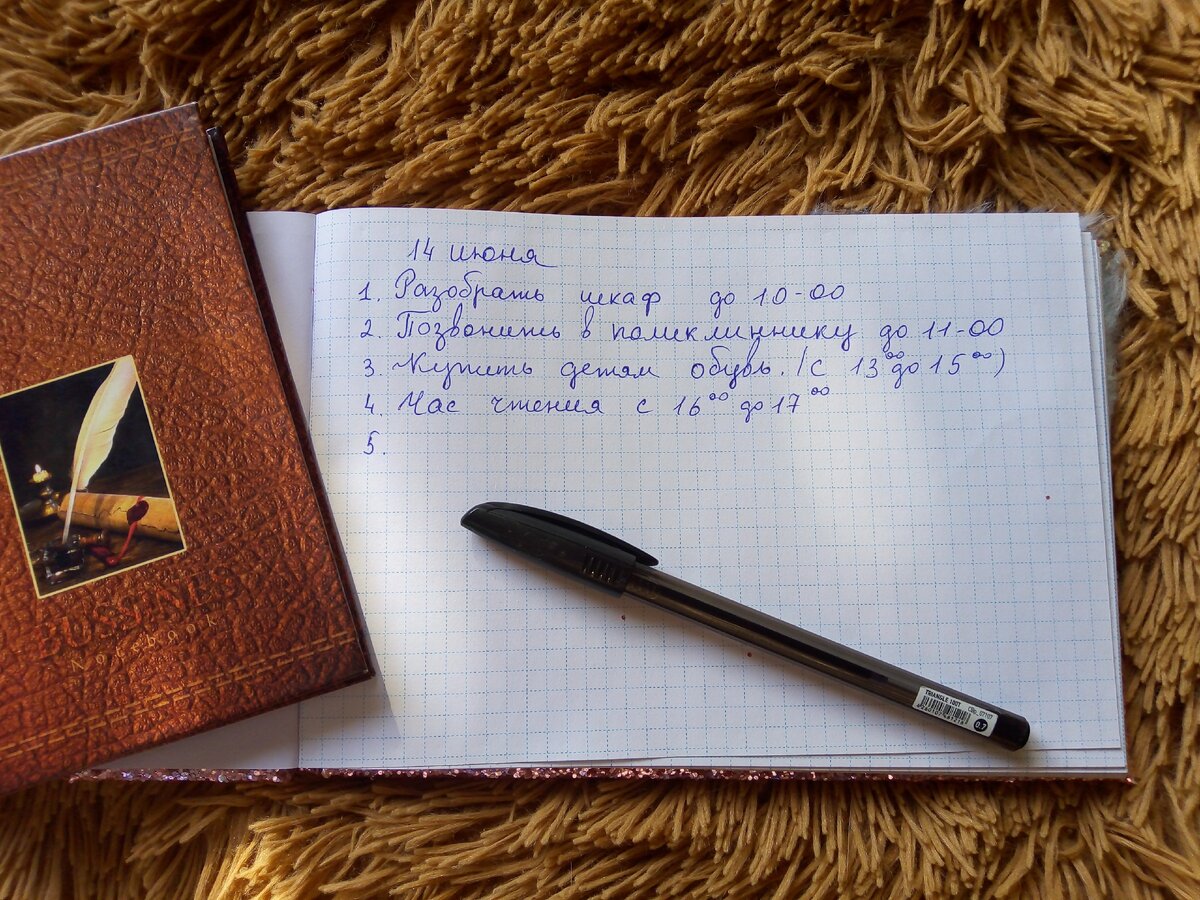 14 июня
1. Разобрать шкаф до 10-00
2. Позвонить в поликлиннику до 11-00
3. Купить детям обувь. (с 13⁰⁰ до 15⁰⁰)
4. Час чтения с 16⁰⁰ до 17⁰⁰
5.
Notebook
TRIANGLE 100T
0.7